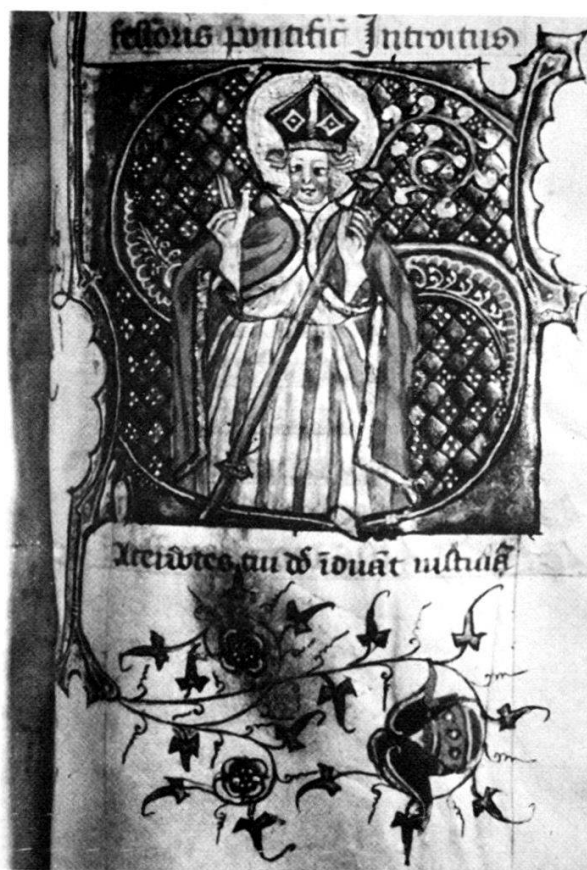 fessoris pontific̄ Introitus
Sacerdotes tui īduāt iusticiā